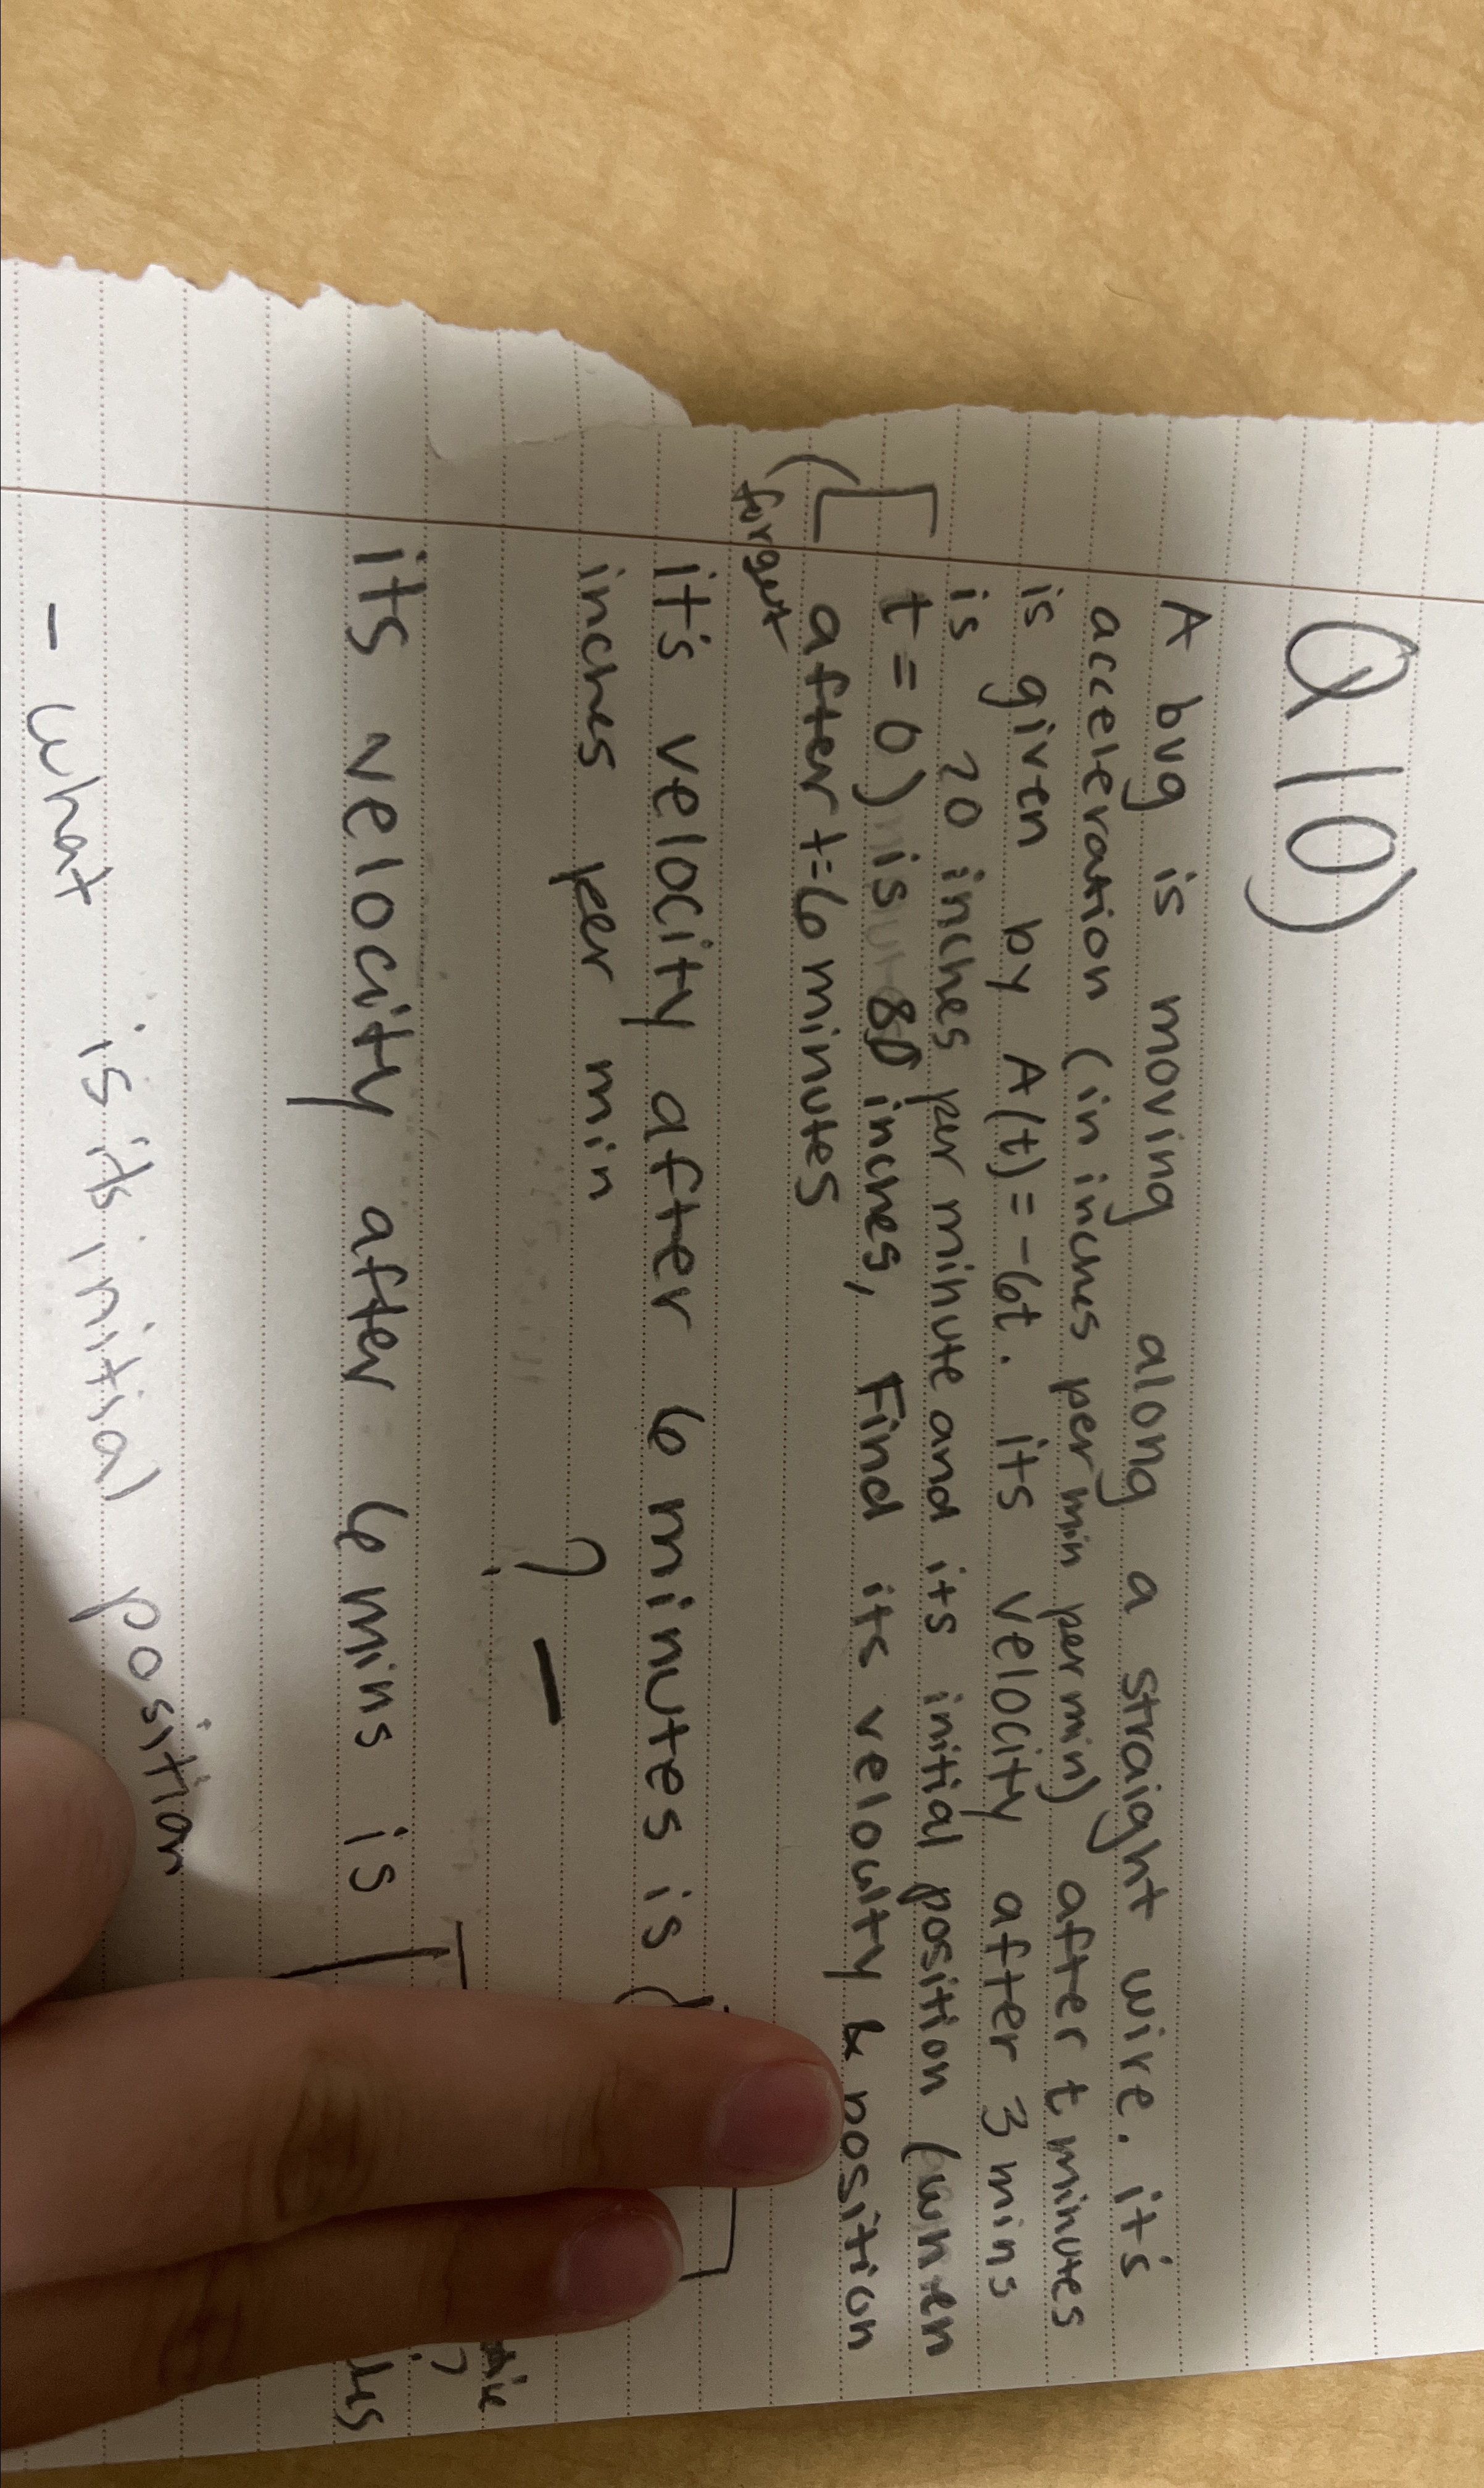 Q10)
A bug is moving along a straight wire. it's
acceleration (in inches per min per min) after t minutes
is given by A(t) = -6t. its velocity after 3 mins
is 20 inches per minute and its initial position (when
t = 0) is 80 inches, Find its velocity & position
after t=6 minutes
forgot
it's velocity after 6 minutes is
inches per min
? -
its velocity after 6 mins is
- what is its initial position